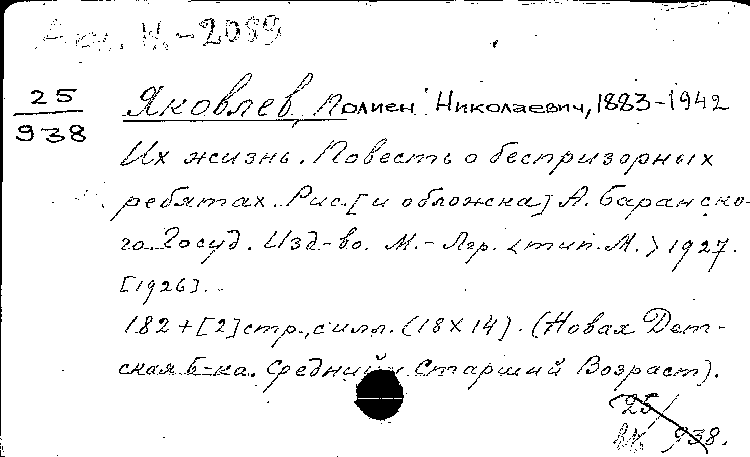 Н.-2089
25
938
Яковлев, Полиен Николаевич, 1883-1942
Их жизнь. Повесть о беспризорных
ребятах. Рис. [и обложка] А. Баранско-
го. Госуд. Изд-во. М.-Лгр. <тип. М.> 1927.
[1926].
182+[2] стр., с илл. (18х14). (Новая Дет-
ская б-ка. Средний и Старший Возраст).
25/
938.